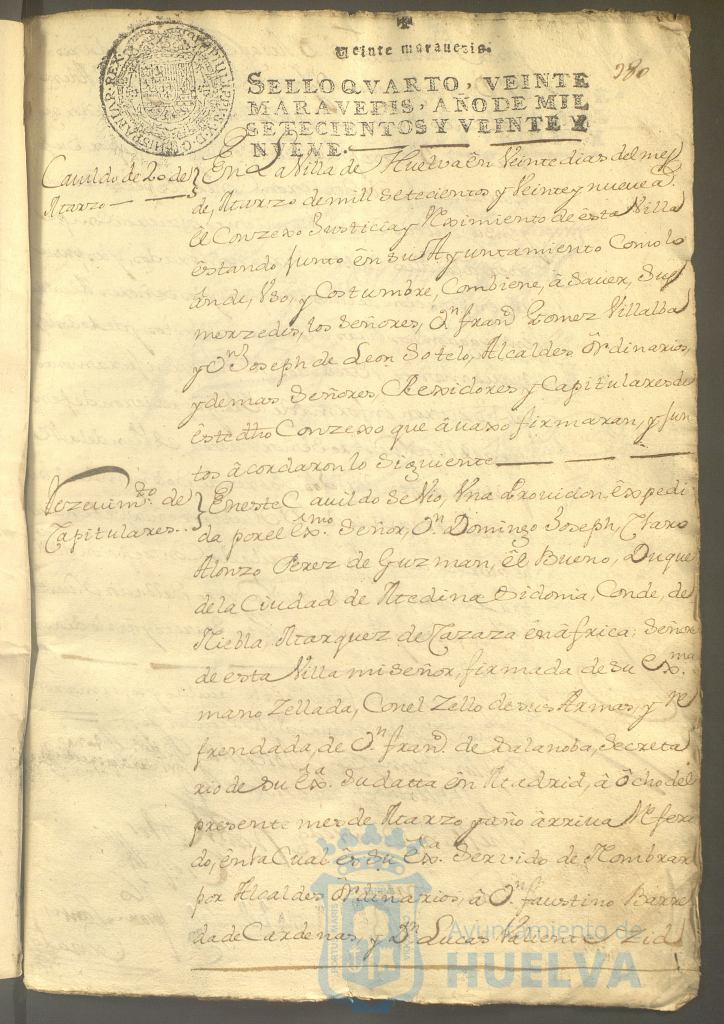 Veinte maravedis.
SELLO QVARTO, VEINTE
MARAVEDIS, AÑO DE MIL
SETECIENTOS Y VEINTE Y
NVEVE.
980
PHILIPPUS V D G HISPANIAR REX
Cavildo de 20 de
Marzo
En La Villa de Huelva ên Veinte dias del mes
de, Marzo de mill Setecientos y Veinte y nueve a.s
êl Conzexo Justicia y Reximiento de êsta Villa
êstando Junto ên su Ayuntamiento Como lo
ân de, Vso, y Costumbre, Combiene, â Saver, Sus
merzedes, los Señores, D.n fran.co Gomez Villalba
y D.n Joseph de Leon Sotelo, Alcaldes Ôrdinarios,
y demas, Señores, Rexidores y Capitulares de
êste dho Conzexo que âvaxo firmaran, y Jun
tos âcordaron lo Siguiente
Rezevim.to de
Capitulares..
En este Cavildo Se Vio, Vna Provision, êxpedi
da por el êx.mo Señor, D.n Domingo Joseph, Claro
Alonzo Perez de Guzman, êl Bueno, Duque
de la Ciudad de Medina Sidonia, Conde, de
Niebla, Marquez de Cazaza ên âfrica; Señor
de esta Villa mi Señor, firmada de su êx.ma
mano Zellada, Con el Zello de sus Armas, y Re
frendada, de D.n fran.co de Salanoba, Secreta
rio de Su êx.a Su datta ên Madrid, â ôcho del
presente mes de Marzo y año ârriva Refera
do, ên la Cual ês Su êx.a Servido de Nombrar
por Alcaldes Ôrdinarios, â D.n faustino Barre
da de Cardenas, y D.n Lucas Valiente Zid
Ayuntamiento de
HUELVA